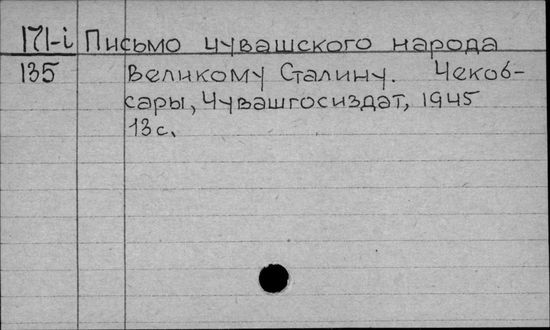 171-i Письмо чувашского народа
135 Великому Сталину. Чекоб-
сары, Чувашгосиздат, 1945
13 с.